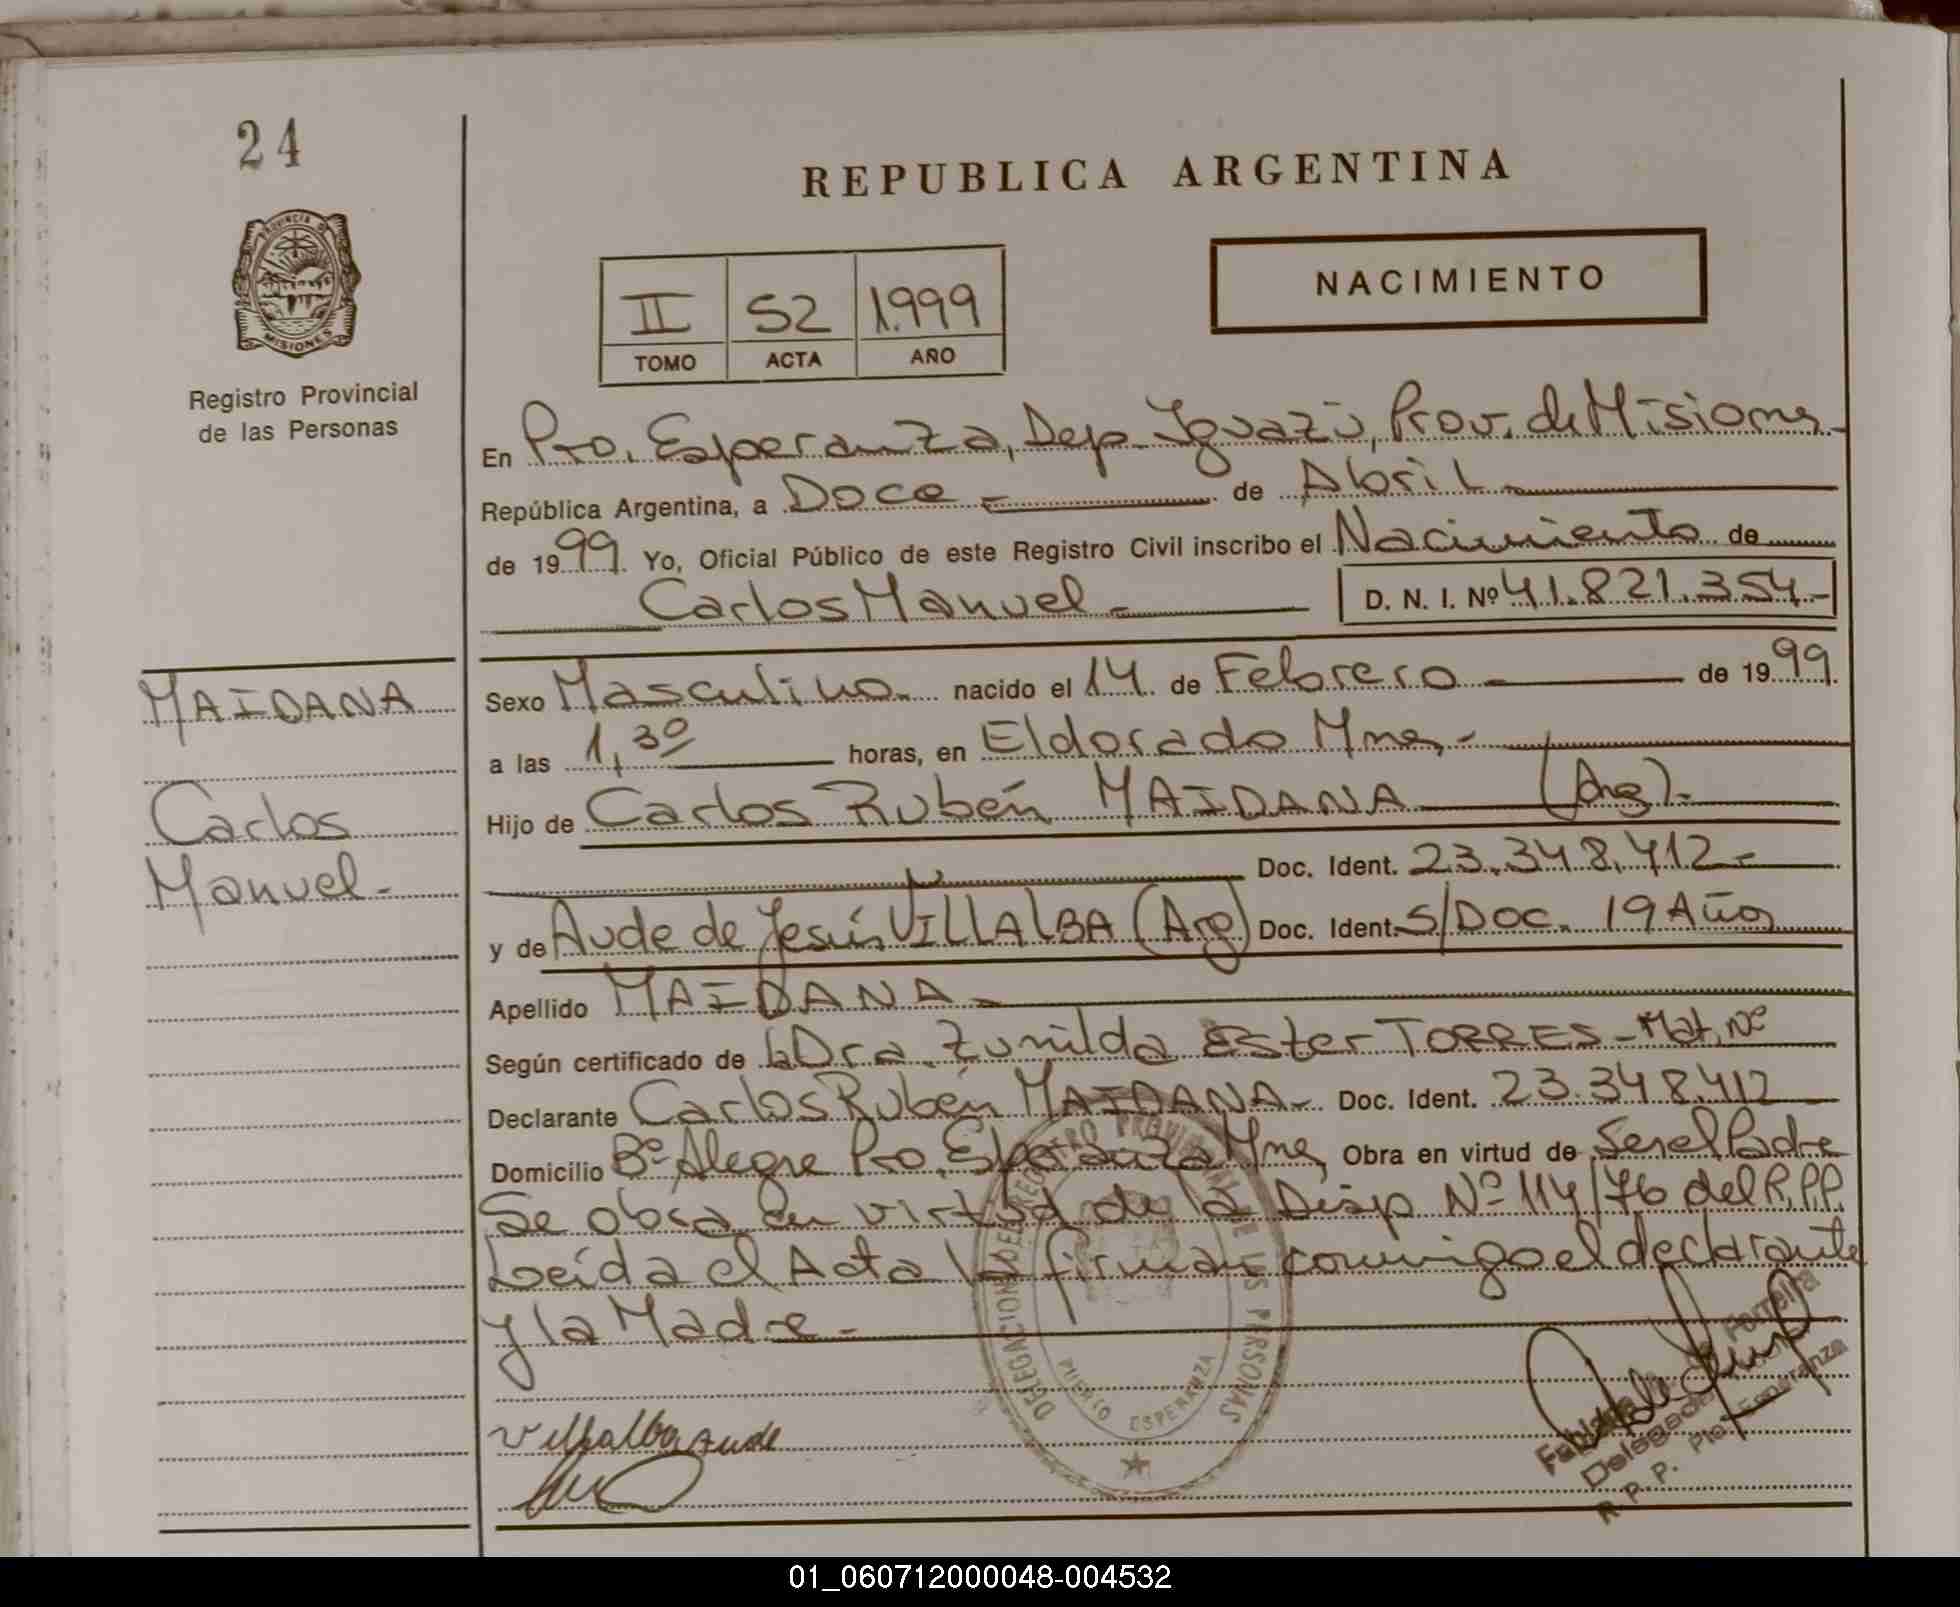 24
REPUBLICA ARGENTINA
PROVINCIA D
MISIONES
NACIMIENTO
II 52 1.999
TOMO ACTA AÑO
Registro Provincial
de las Personas
En Pto. Esperanza, Dep. Iguazú, Prov. de Misiones
República Argentina, a Doce de Abril
de 1999 Yo, Oficial Público de este Registro Civil inscribo el Nacimiento de
Carlos Manuel D. N. I. Nº 41.821.354
MAIDANA
Carlos
Manuel
Sexo Masculino nacido el 14 de Febrero de 1999
a las 1,30 horas, en Eldorado Mnes
Hijo de Carlos Rubén MAIDANA (Arg)
Doc. Ident. 23.348.412
y de Aude de Jesús VILLALBA (Arg) Doc. Ident. S/Doc. 19 Años
Apellido MAIDANA
Según certificado de Dra. Zunilda Ester TORRES - Mat. Nº
Declarante Carlos Rubén MAIDANA Doc. Ident. 23.348.412
Domicilio Bº Alegre Pto. Esperanza Mnes Obra en virtud de Ser el Padre
Se obra en virtud de la Disp Nº 114/76 del R.P.P.
Leída el Acta la firman conmigo el declarante
y la Madre
DELEGACION DEL REGISTRO PROVINCIAL DE LAS PERSONAS
PUERTO ESPERANZA
Villalba Aude
Ferreira
R. P. P. Pto. Esperanza
01_060712000048-004532